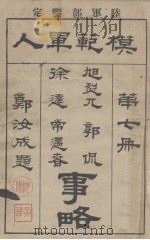 陸軍部鑒定
模範軍人
第七冊
旭烈兀 郭侃
徐達 常遇春
事略
鄭汝成題